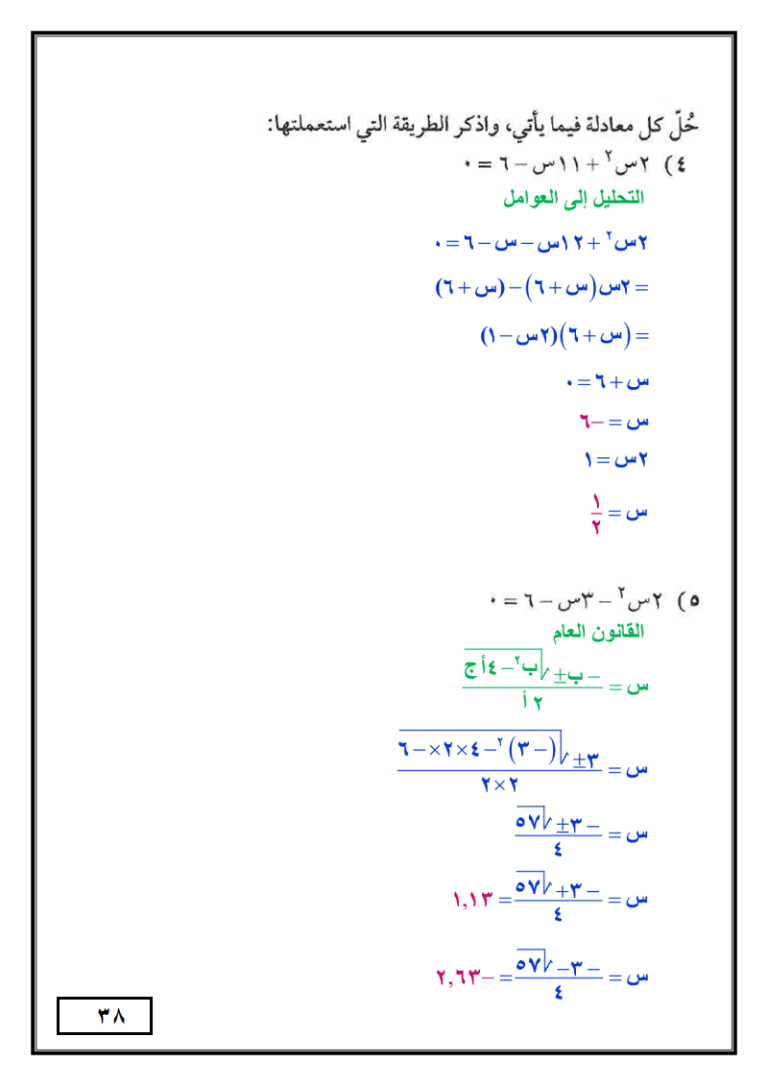 حُلّ كل معادلة فيما يأتي، واذكر الطريقة التي استعملتها:
٤) ٢س٢ + ١١س – ٦ = ٠
التحليل إلى العوامل
٢س٢ + ١٢س – س – ٦ = ٠
= ٢س(س + ٦) – (س + ٦)
= (س + ٦)(٢س – ١)
س + ٦ = ٠
س = –٦
٢س = ١
س = ١/٢
٥) ٢س٢ – ٣س – ٦ = ٠
القانون العام
س = (– ب ± √(ب٢ – ٤أ ج)) / ٢أ
س = (٣ ± √((– ٣)٢ – ٤ × ٢ × – ٦)) / ٢ × ٢
س = (– ٣ ± √٥٧) / ٤
س = (– ٣ + √٥٧) / ٤ = ١,١٣
س = (– ٣ – √٥٧) / ٤ = –٢,٦٣
٣٨